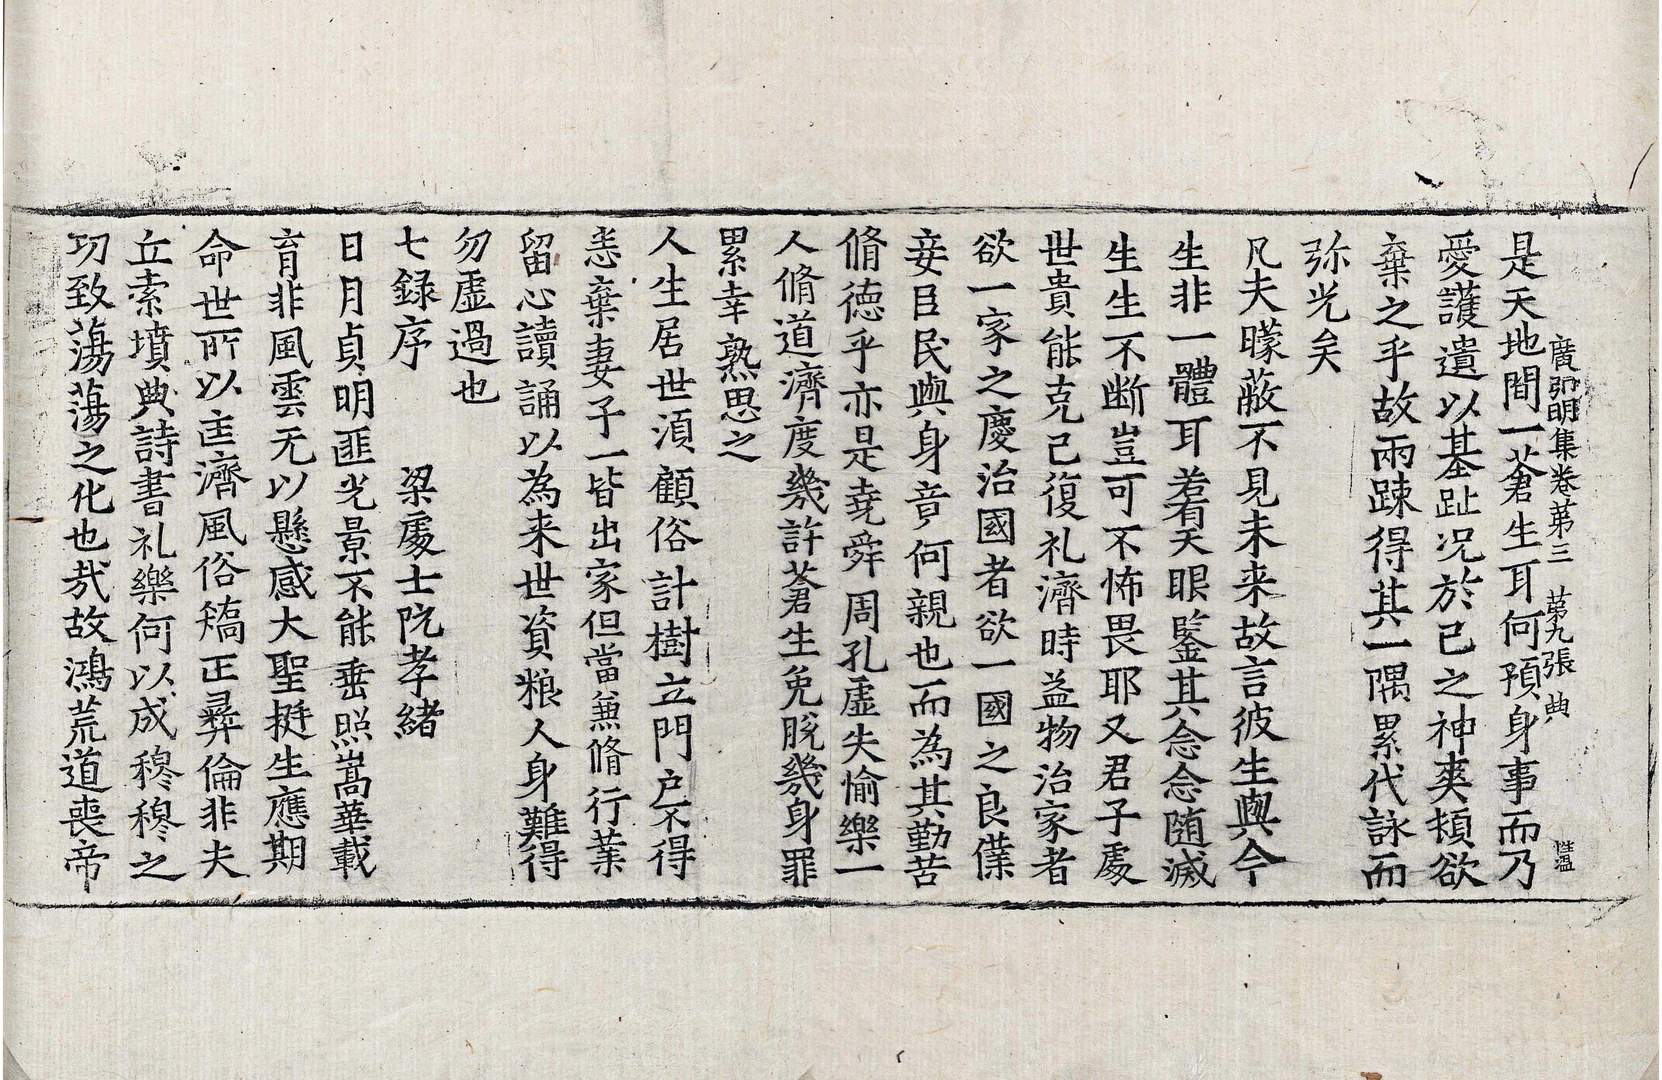 廣弘明集卷苐三　苐九張　典　性溫
是天地間一蒼生耳何預身事而乃
愛護遺以基趾况於已之神爽頓欲
棄之乎故兩踈得其一隅累代詠而
弥光矣
凡夫矇蔽不見未来故言彼生與今
生非一體耳若有天眼鑒其念念随滅
生生不断豈可不怖畏耶又君子處
世貴能克己復礼濟時益物治家者
欲一家之慶治國者欲一國之良僕
妾臣民與身竟何親也而為其勤苦
脩德乎亦是堯舜周孔虛失愉樂一
人脩道濟度幾許蒼生免脫幾身罪
累幸熟思之
人生居世湏顧俗計樹立門户不得
恚棄妻子一皆出家但當兼脩行業
留心讀誦以為来世資粮人身難得
勿虛過也
七録序　　梁處士阮孝緒
日月貞明匪光景不能垂照嵩華載
育非風雲无以懸感大聖挺生應期
命世所以匡濟風俗矯正彛倫非夫
丘索墳典詩書礼樂何以成穆穆之
功致蕩蕩之化也㢤故鴻荒道喪帝